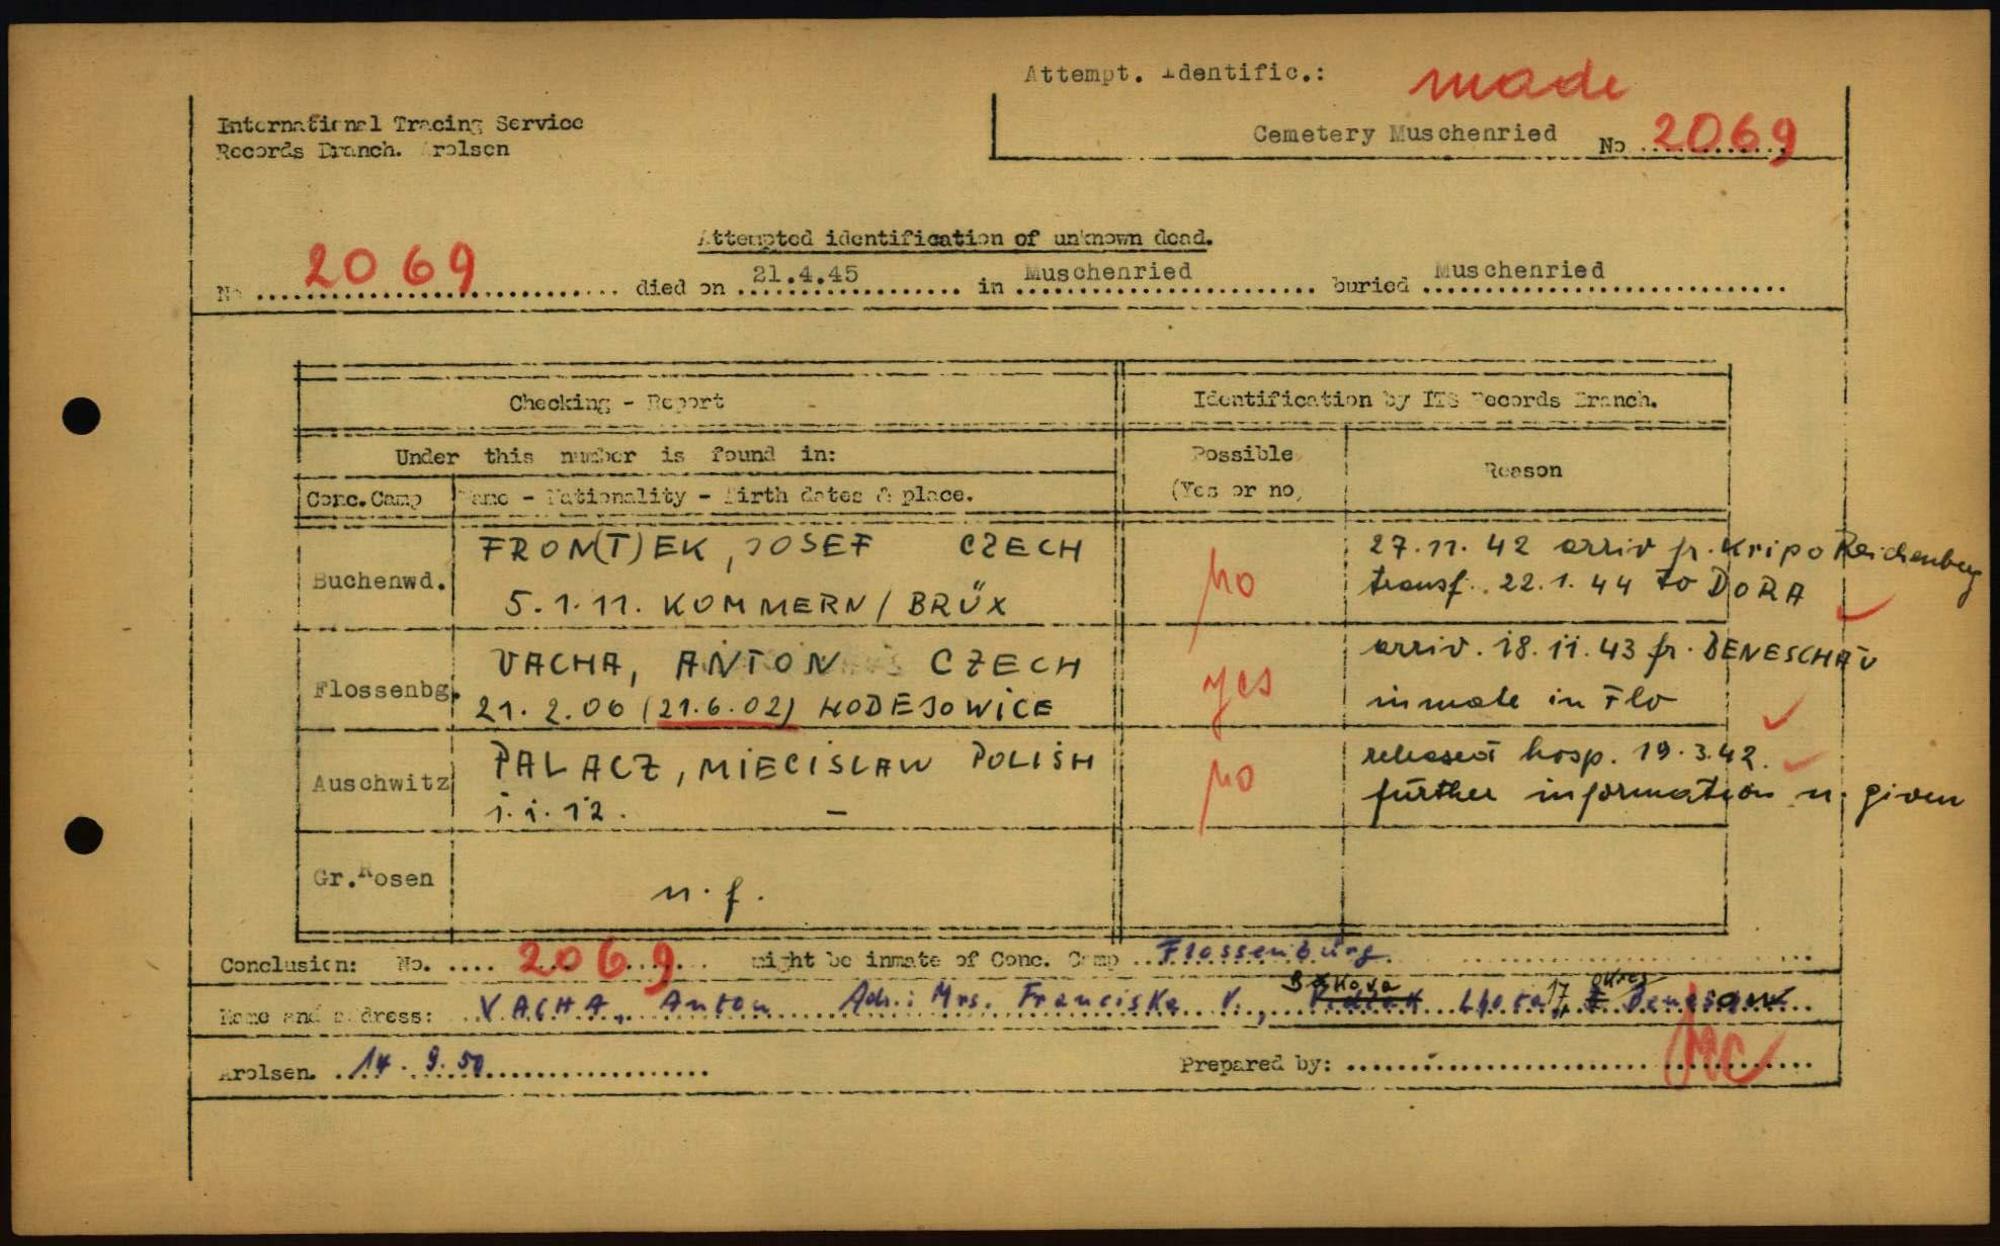 Attempt. Identific.: made
International Tracing Service
Cemetery Muschenried No 2069
Records Branch. Arolsen
Attempted identification of unknown dead.
No 2069 died on 21.4.45 in Muschenried buried Muschenried
Checking - Report
Identification by ITS Records Branch.
Under this number is found in:
Possible
(Yes or no)
Reason
Conc.Camp
Name - Nationality - Birth dates & place.
Buchenwd.
FRON(T)EK, JOSEF CZECH
5.1.11. KOMMERN / BRÜX
no
27.11.42 arriv fr. Kripo Reichenberg
transf. 22.1.44 to DORA
Flossenbg.
VACHA, ANTON CZECH
21.2.06 (21.6.02) HODEJOWICE
yes
arriv. 18.11.43 fr. BENESCHAU
inmate in Flo
Auschwitz
PALACZ, MIECISLAW POLISH
1.1.12. —
no
released hosp. 19.3.42.
further information n. given
Gr.Rosen
n.f.
Conclusion: No. 2069 might be inmate of Conc. Camp Flossenbürg.
Name and address: VACHA, Anton Adr.: Mrs. Franciska V., Lhota 17, okres
Arolsen. 14.9.50 Prepared by: MC